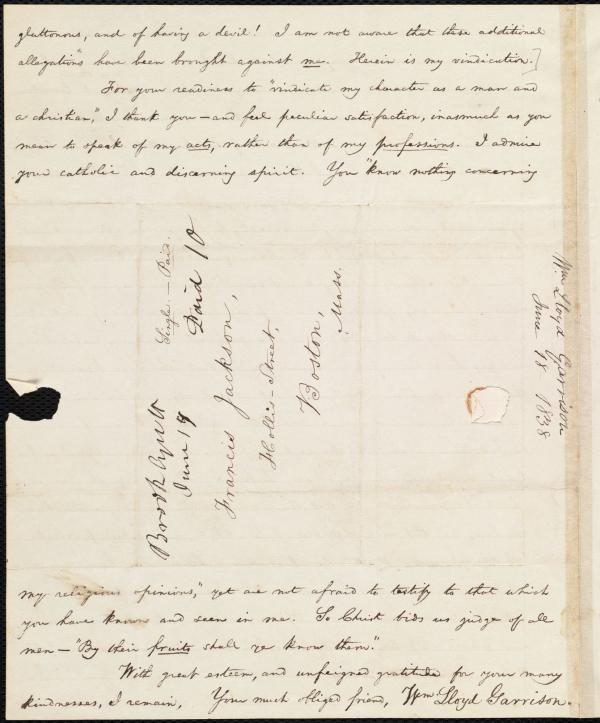 gluttonous, and of having a devil! I am not aware that these additional
allegations have been brought against me. Herein is my vindication.]
For your readiness to "vindicate my character as a man and
a christian," I thank you—and feel peculiar satisfaction, inasmuch as you
mean to speak of my acts, rather than of my professions. I admire
your catholic and discerning spirit. You "know nothing concerning
Single.—Paid.
Paid 10
Brooklyn Ct
June 19
Francis Jackson,
Hollis-Street,
Boston,
Mass.
Wm. Lloyd Garrison
June 18 1838
my religious opinions," yet are not afraid to testify to that which
you have known and seen in me. So Christ bids us judge of all
men—"By their fruits shall ye know them."
With great esteem, and unfeigned gratitude for your many
kindnesses, I remain, Your much obliged friend, Wm. Lloyd Garrison.